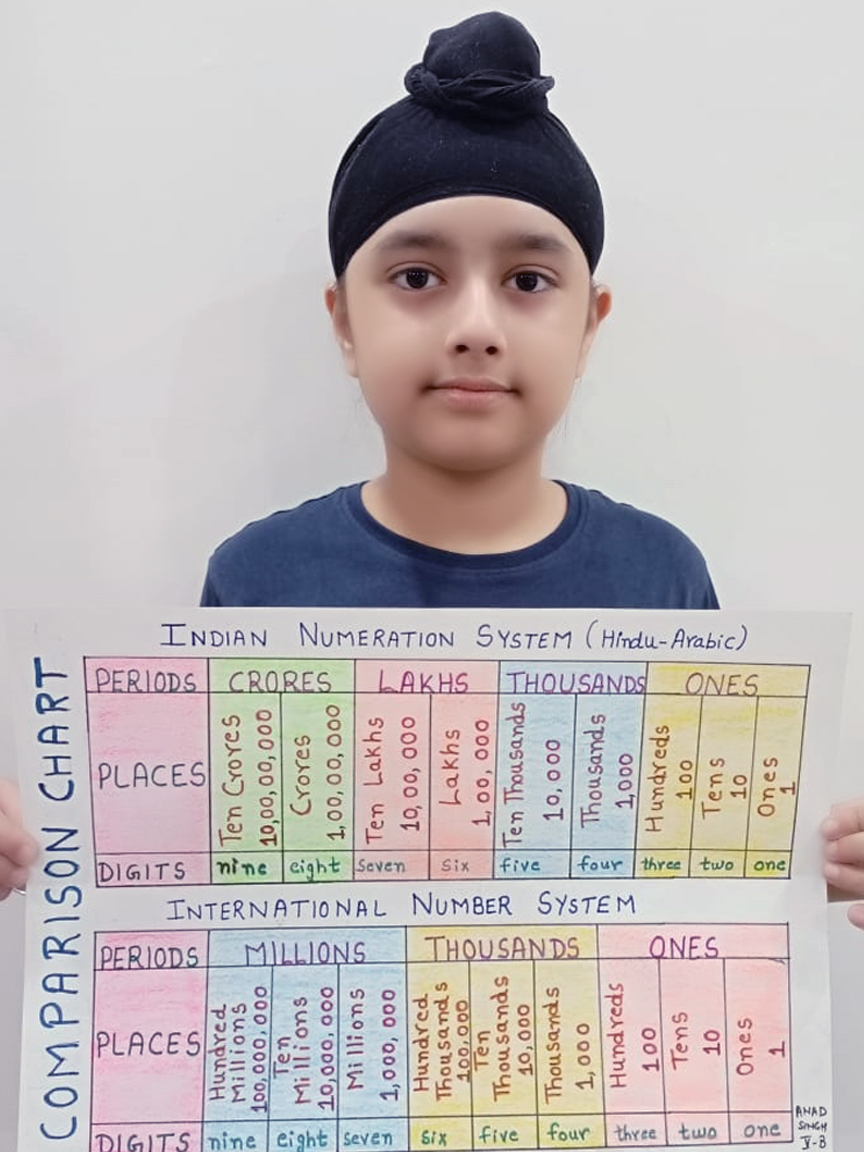 COMPARISON CHART
INDIAN NUMERATION SYSTEM (Hindu-Arabic)
PERIODS CRORES LAKHS THOUSANDS ONES
PLACES Ten Crores 10,00,00,000 Crores 1,00,00,000 Ten Lakhs 10,00,000 Lakhs 1,00,000 Ten Thousands 10,000 Thousands 1,000 Hundreds 100 Tens 10 Ones 1
DIGITS nine eight seven six five four three two one
INTERNATIONAL NUMBER SYSTEM
PERIODS MILLIONS THOUSANDS ONES
PLACES Hundred Millions 100,000,000 Ten Millions 10,000,000 Millions 1,000,000 Hundred Thousands 100,000 Ten Thousands 10,000 Thousands 1,000 Hundreds 100 Tens 10 Ones 1
DIGITS nine eight seven six five four three two one
ANAD
SINGH
V-B